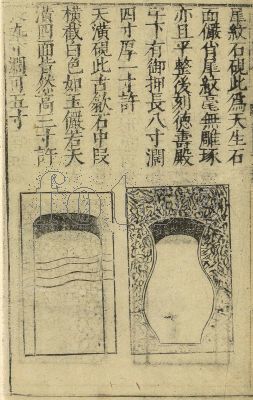 星紋石硯此爲天生石
面儼肖星紋毫無雕琢
亦且平整後刻德壽殿
字下有御押長八寸濶
四寸厚二寸許
天潢硯此古歙石中段
橫截白色如玉儼若天
潢四面皆然高三寸許
寸濶可五寸